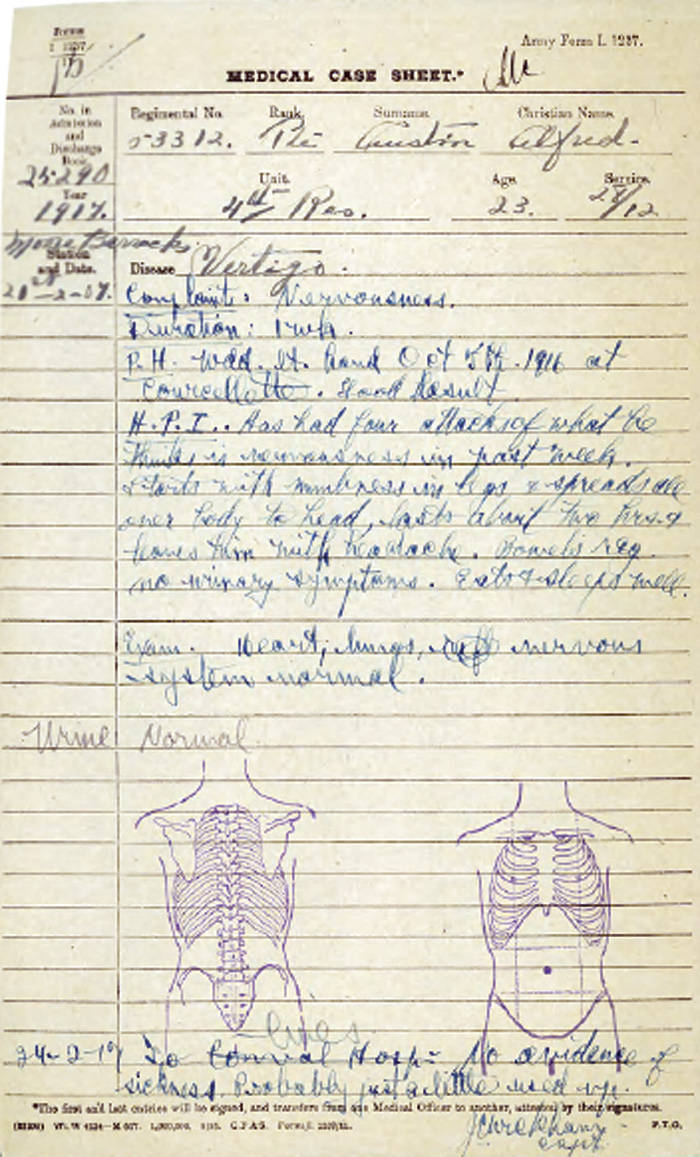 Forms
I 1237
10
Army Form I. 1237.
MEDICAL CASE SHEET.*
No. in Admission and Discharge Book
25290
Year
1917.
Regimental No. Rank. Surname. Christian Name.
53312. Pte Austin Alfred.
Unit. Age. Service.
4th Res. 23. 28/12
Moore Barracks
Station and Date.
Disease Vertigo.
Complaint: Nervousness.
Duration: 1 wk.
P.H. Wdd. lt. hand Oct 5th. 1916 at
Courcellette. Good Result
H.P.I.. Has had four attacks of what he
thinks is nervousness in past week.
Starts with numbness in legs & spreads all
over body to head, lasts about two hrs. &
leaves him with headache. Bowels reg.
no urinary symptoms. Eats & sleeps well.
Exam. Heart, lungs, nervous
system normal.
Urine Normal.
24-2-17 To Conval Hosp: No evidence of
sickness. Probably just a little used up.
*The first and last entries will be signed, and transfers from one Medical Officer to another, attested by their signatures.
Capt.
P.T.O.